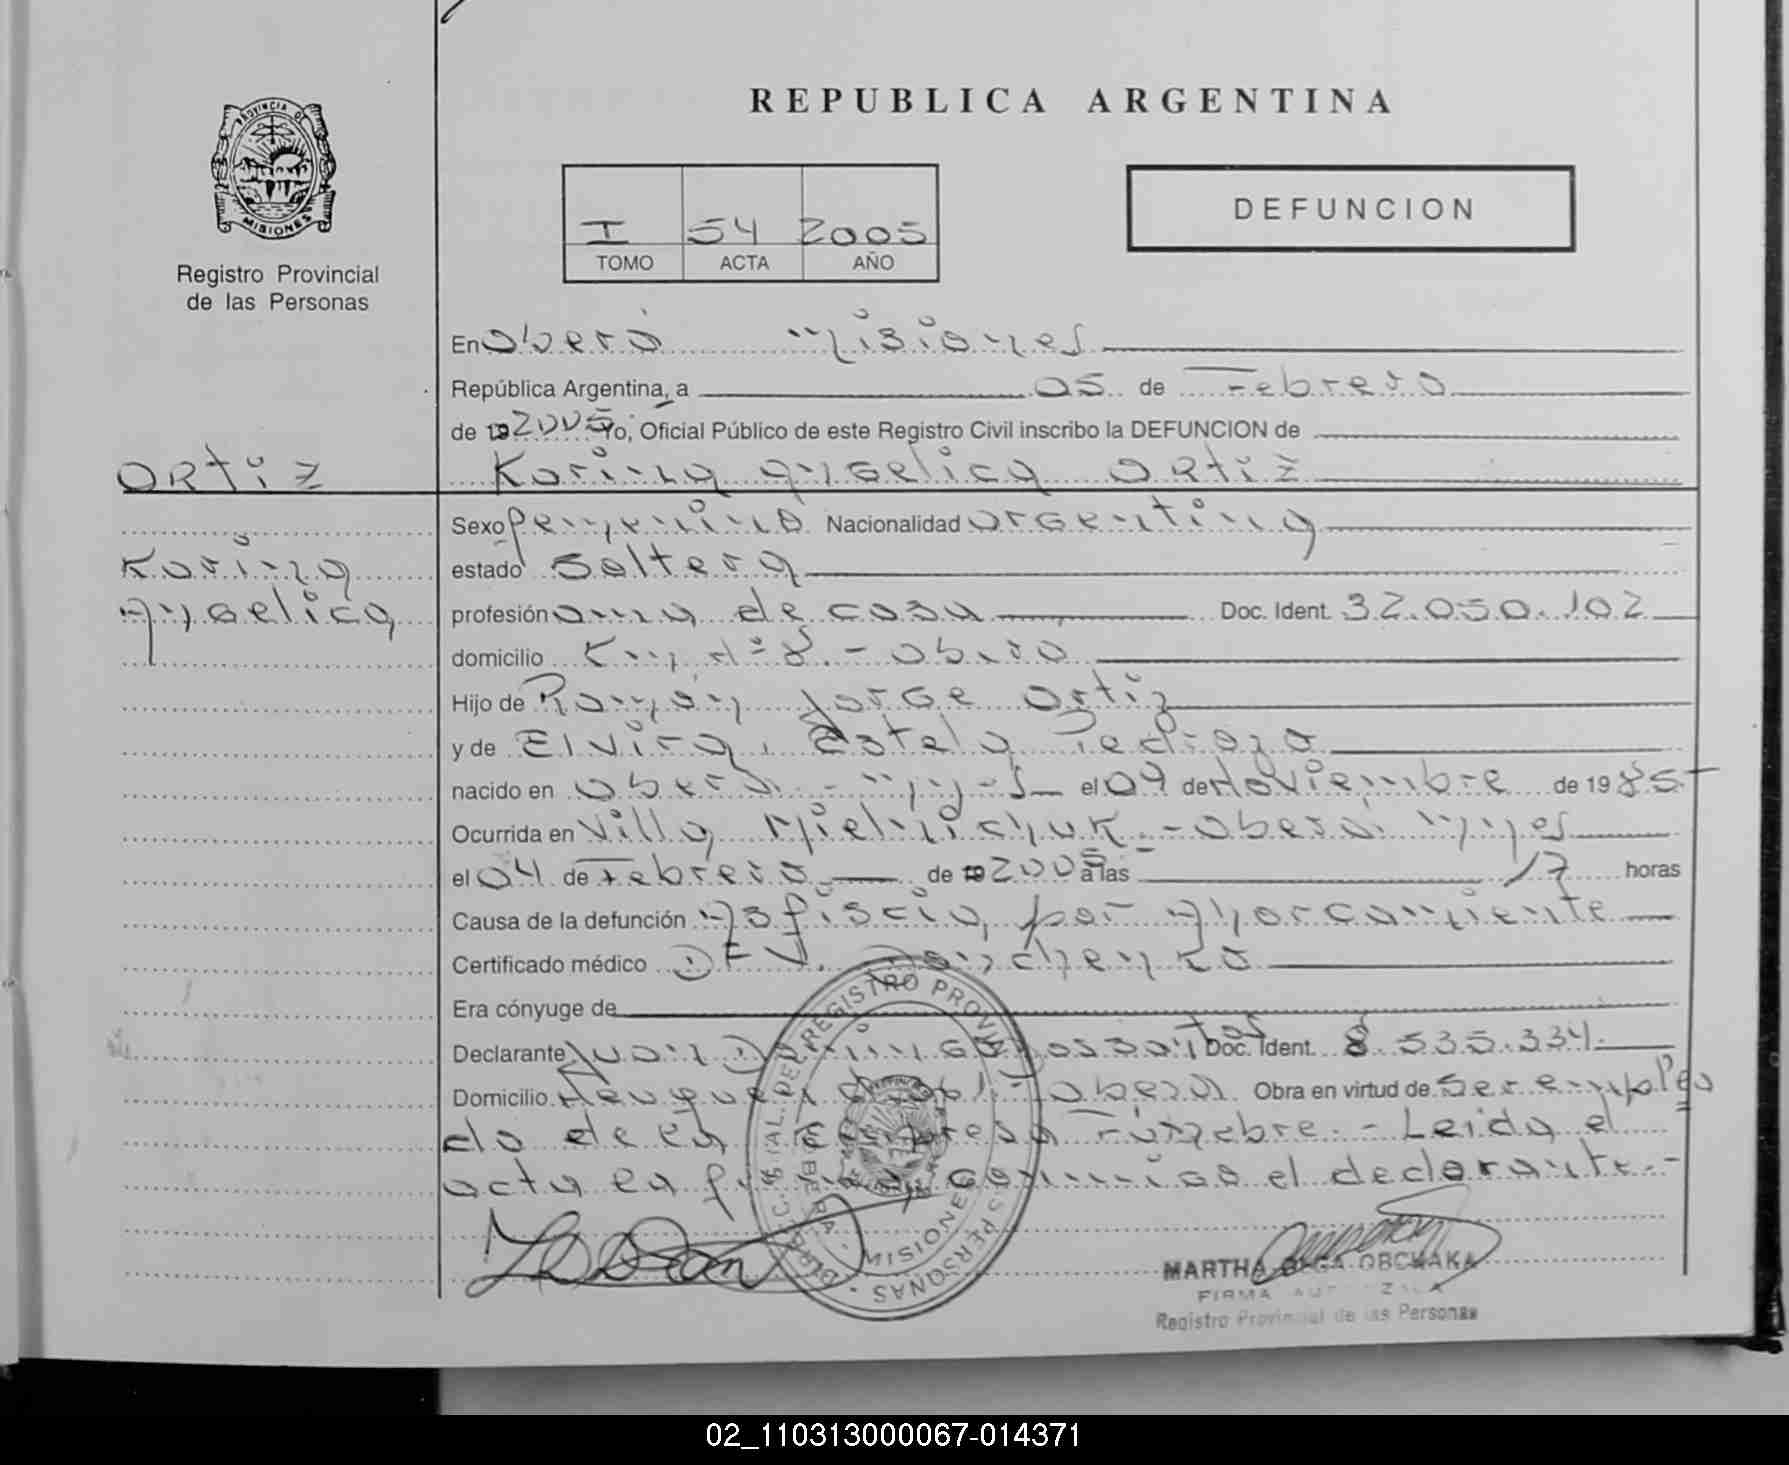 REPUBLICA ARGENTINA
PROVINCIA DE MISIONES
Registro Provincial
de las Personas
I 54 2005
TOMO ACTA AÑO
DEFUNCION
En Oberá Misiones
República Argentina, a 05 de Febrero
de 19 2005 Yo, Oficial Público de este Registro Civil inscribo la DEFUNCION de
Ortiz
Karina Angelica Ortiz
Karina
Angelica
Sexo femenino Nacionalidad argentina
estado Soltera
profesión ama de casa Doc. Ident. 32.050.102
domicilio Km nº 8 - Oberá
Hijo de Ramón Jorge Ortiz
y de Elvira Estela Pedrozo
nacido en Oberá - Mnes el 09 de Noviembre de 1985
Ocurrida en Villa Mielnichuk - Oberá Mnes
el 04 de Febrero de 19 2005 a las 17 horas
Causa de la defunción Asfiscia por Ahorcamiento
Certificado médico D F V.
Era cónyuge de
Declarante Juan Domingo Dossantos Doc. Ident. 8.535.334
Domicilio Neuquen Oberá Obra en virtud de Ser emplea
do de la Empresa Fúnebre. - Leida el
acta la firma conmigo el declarante. -
DIREC. GRAL. DEL REGISTRO PROVINCIAL DE LAS PERSONAS
OBERA
MISIONES
MARTHA OLGA OBCHAKA
FIRMA AUTORIZADA
Registro Provincial de las Personas
02_110313000067-014371